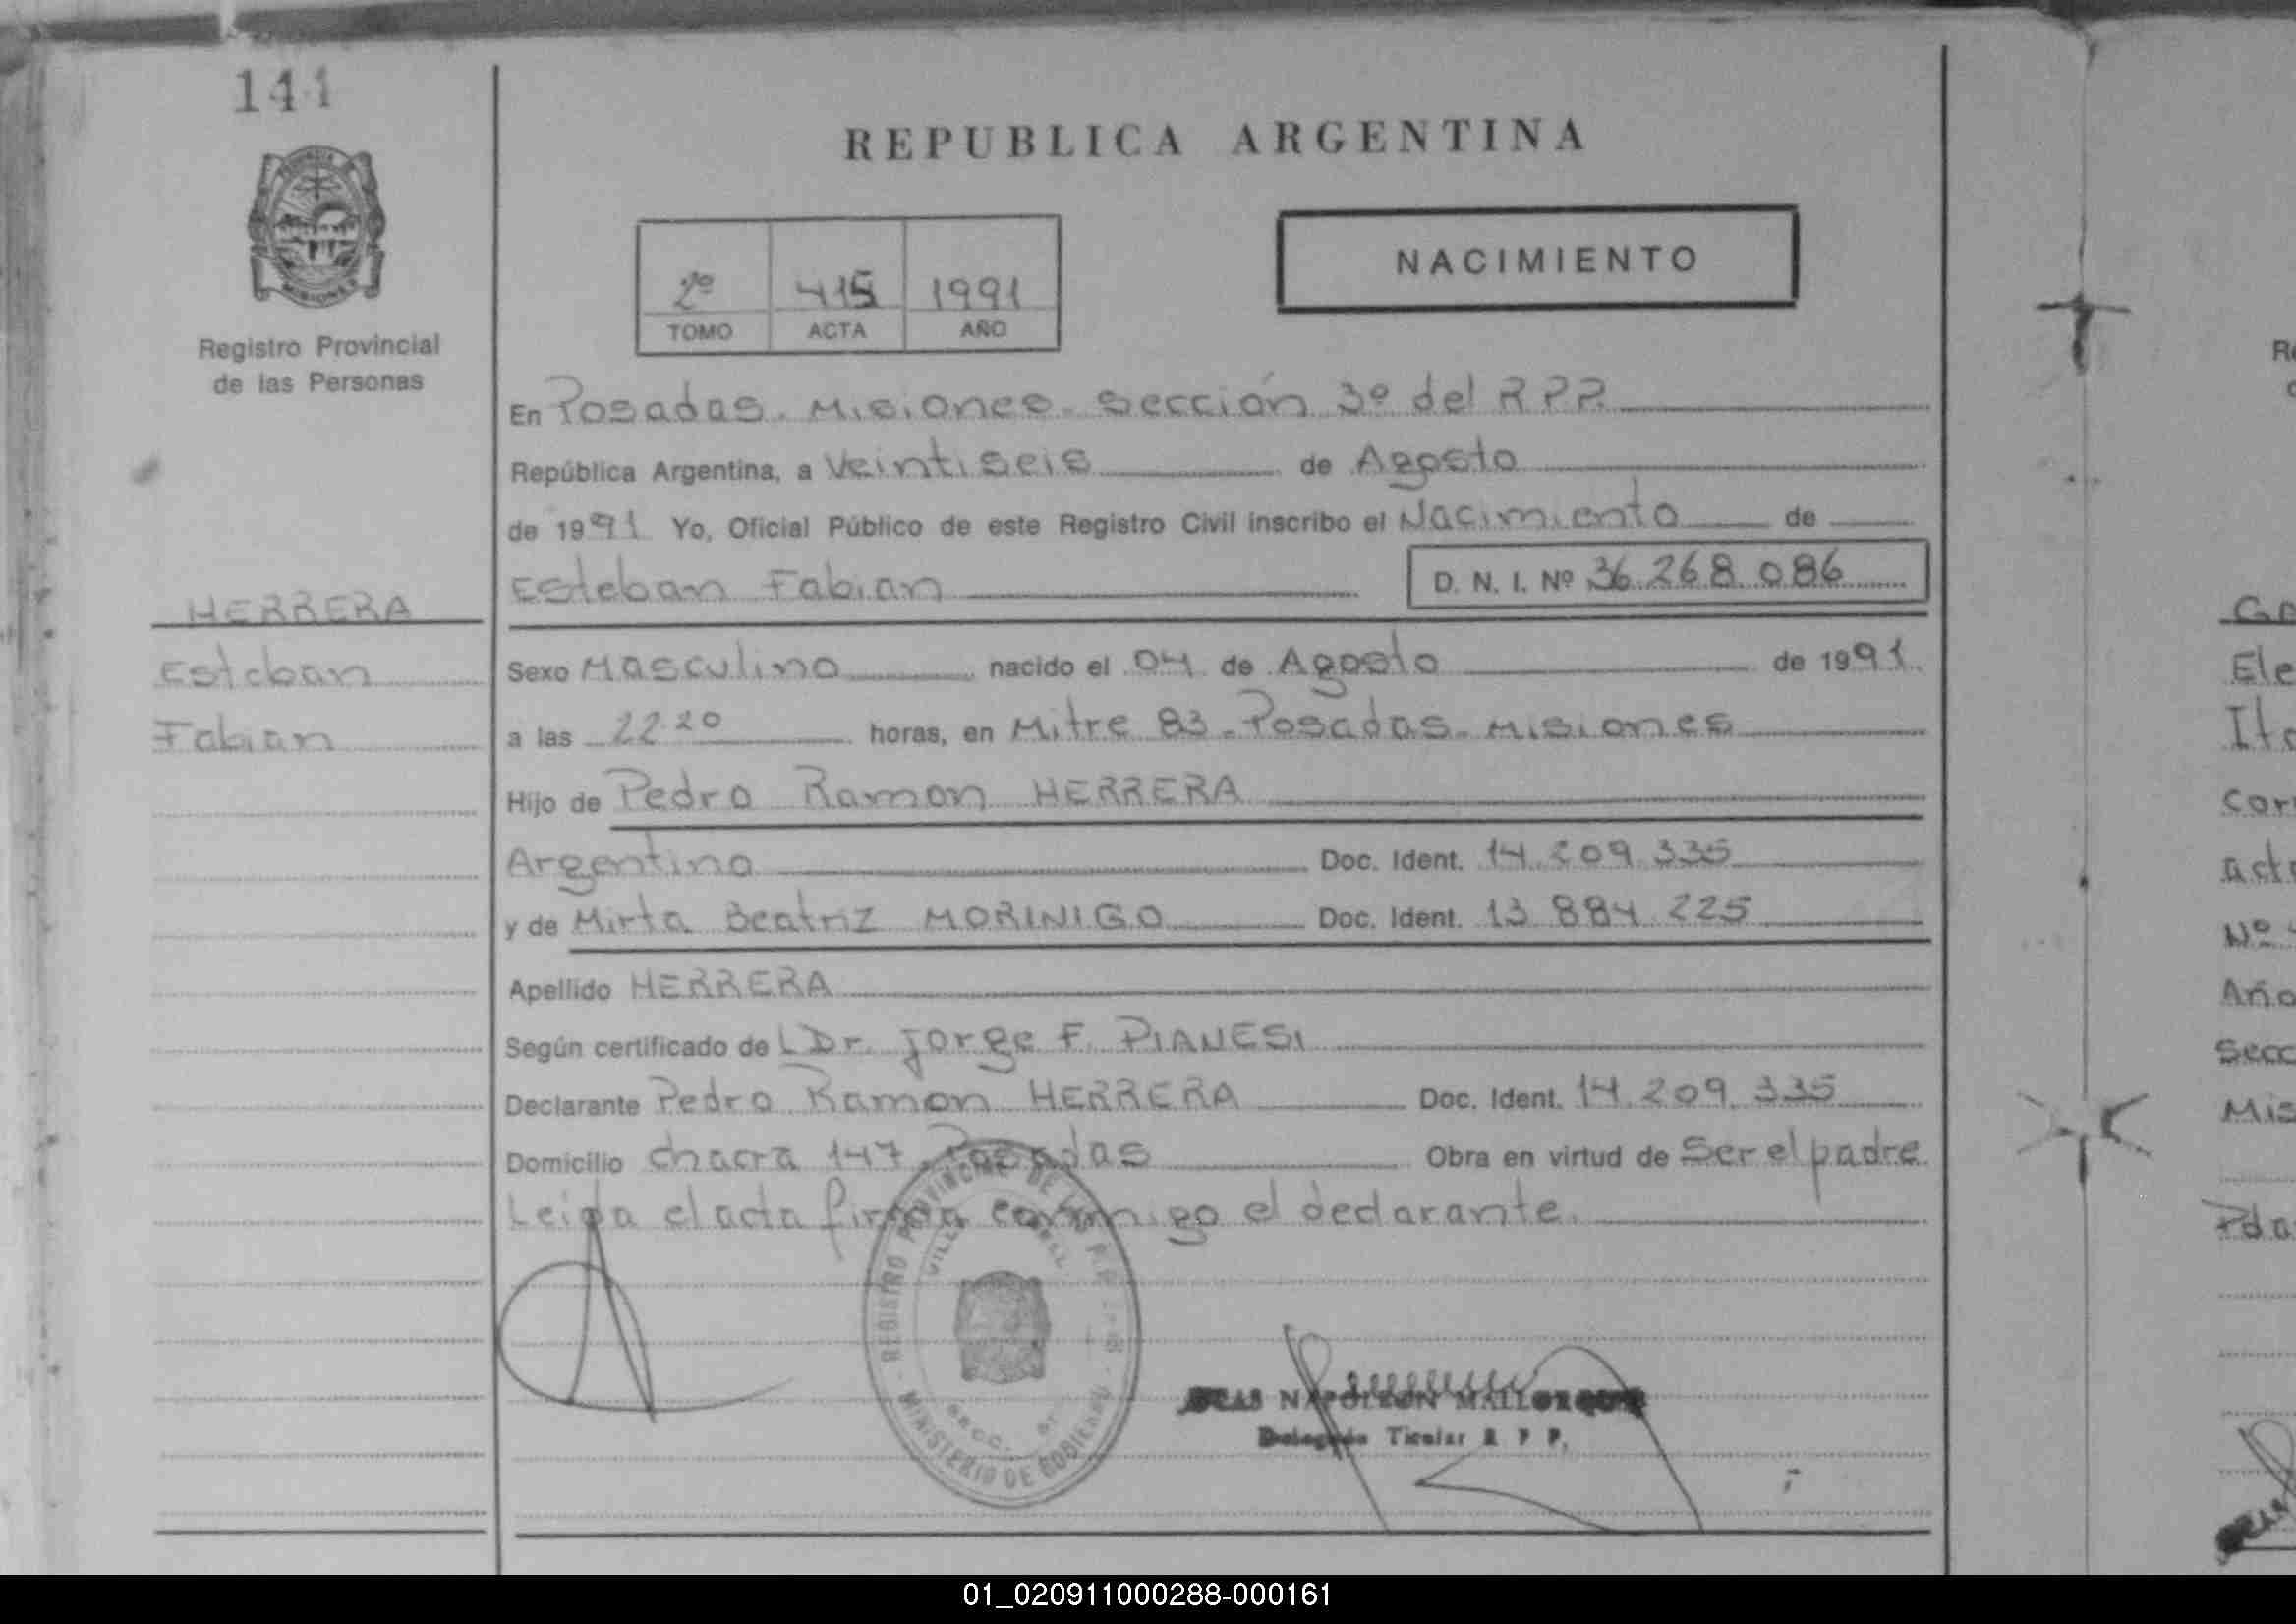 141
REPUBLICA ARGENTINA
PROVINCIA
MISIONES
NACIMIENTO
2º 415 1991
TOMO ACTA AÑO
Registro Provincial
de las Personas
En Posadas. Misiones. Sección 3º del R.P.P.
República Argentina, a Veintiseis de Agosto
de 1991 Yo, Oficial Público de este Registro Civil inscribo el Nacimiento de
Esteban Fabian D. N. I. Nº 36.268.086
HERRERA
Esteban
Fabian
Sexo Masculino nacido el 04 de Agosto de 1991.
a las 22.20 horas, en Mitre 83 - Posadas - Misiones
Hijo de Pedro Ramon HERRERA
Argentina Doc. Ident. 14.209.335
y de Mirta Beatriz MORINIGO Doc. Ident. 13.884.225
Apellido HERRERA
Según certificado de L Dr. Jorge F. PIANESI
Declarante Pedro Ramon HERRERA Doc. Ident. 14.209.335
Domicilio Chacra 147 Posadas Obra en virtud de Ser el padre.
Leida el acta firma conmigo el declarante.
REGISTRO PROVINCIAL DE LAS
MINISTERIO DE GOBIERNO
NAPOLEON
Titular R P P.
Ele
Año
Nº
01_020911000288-000161